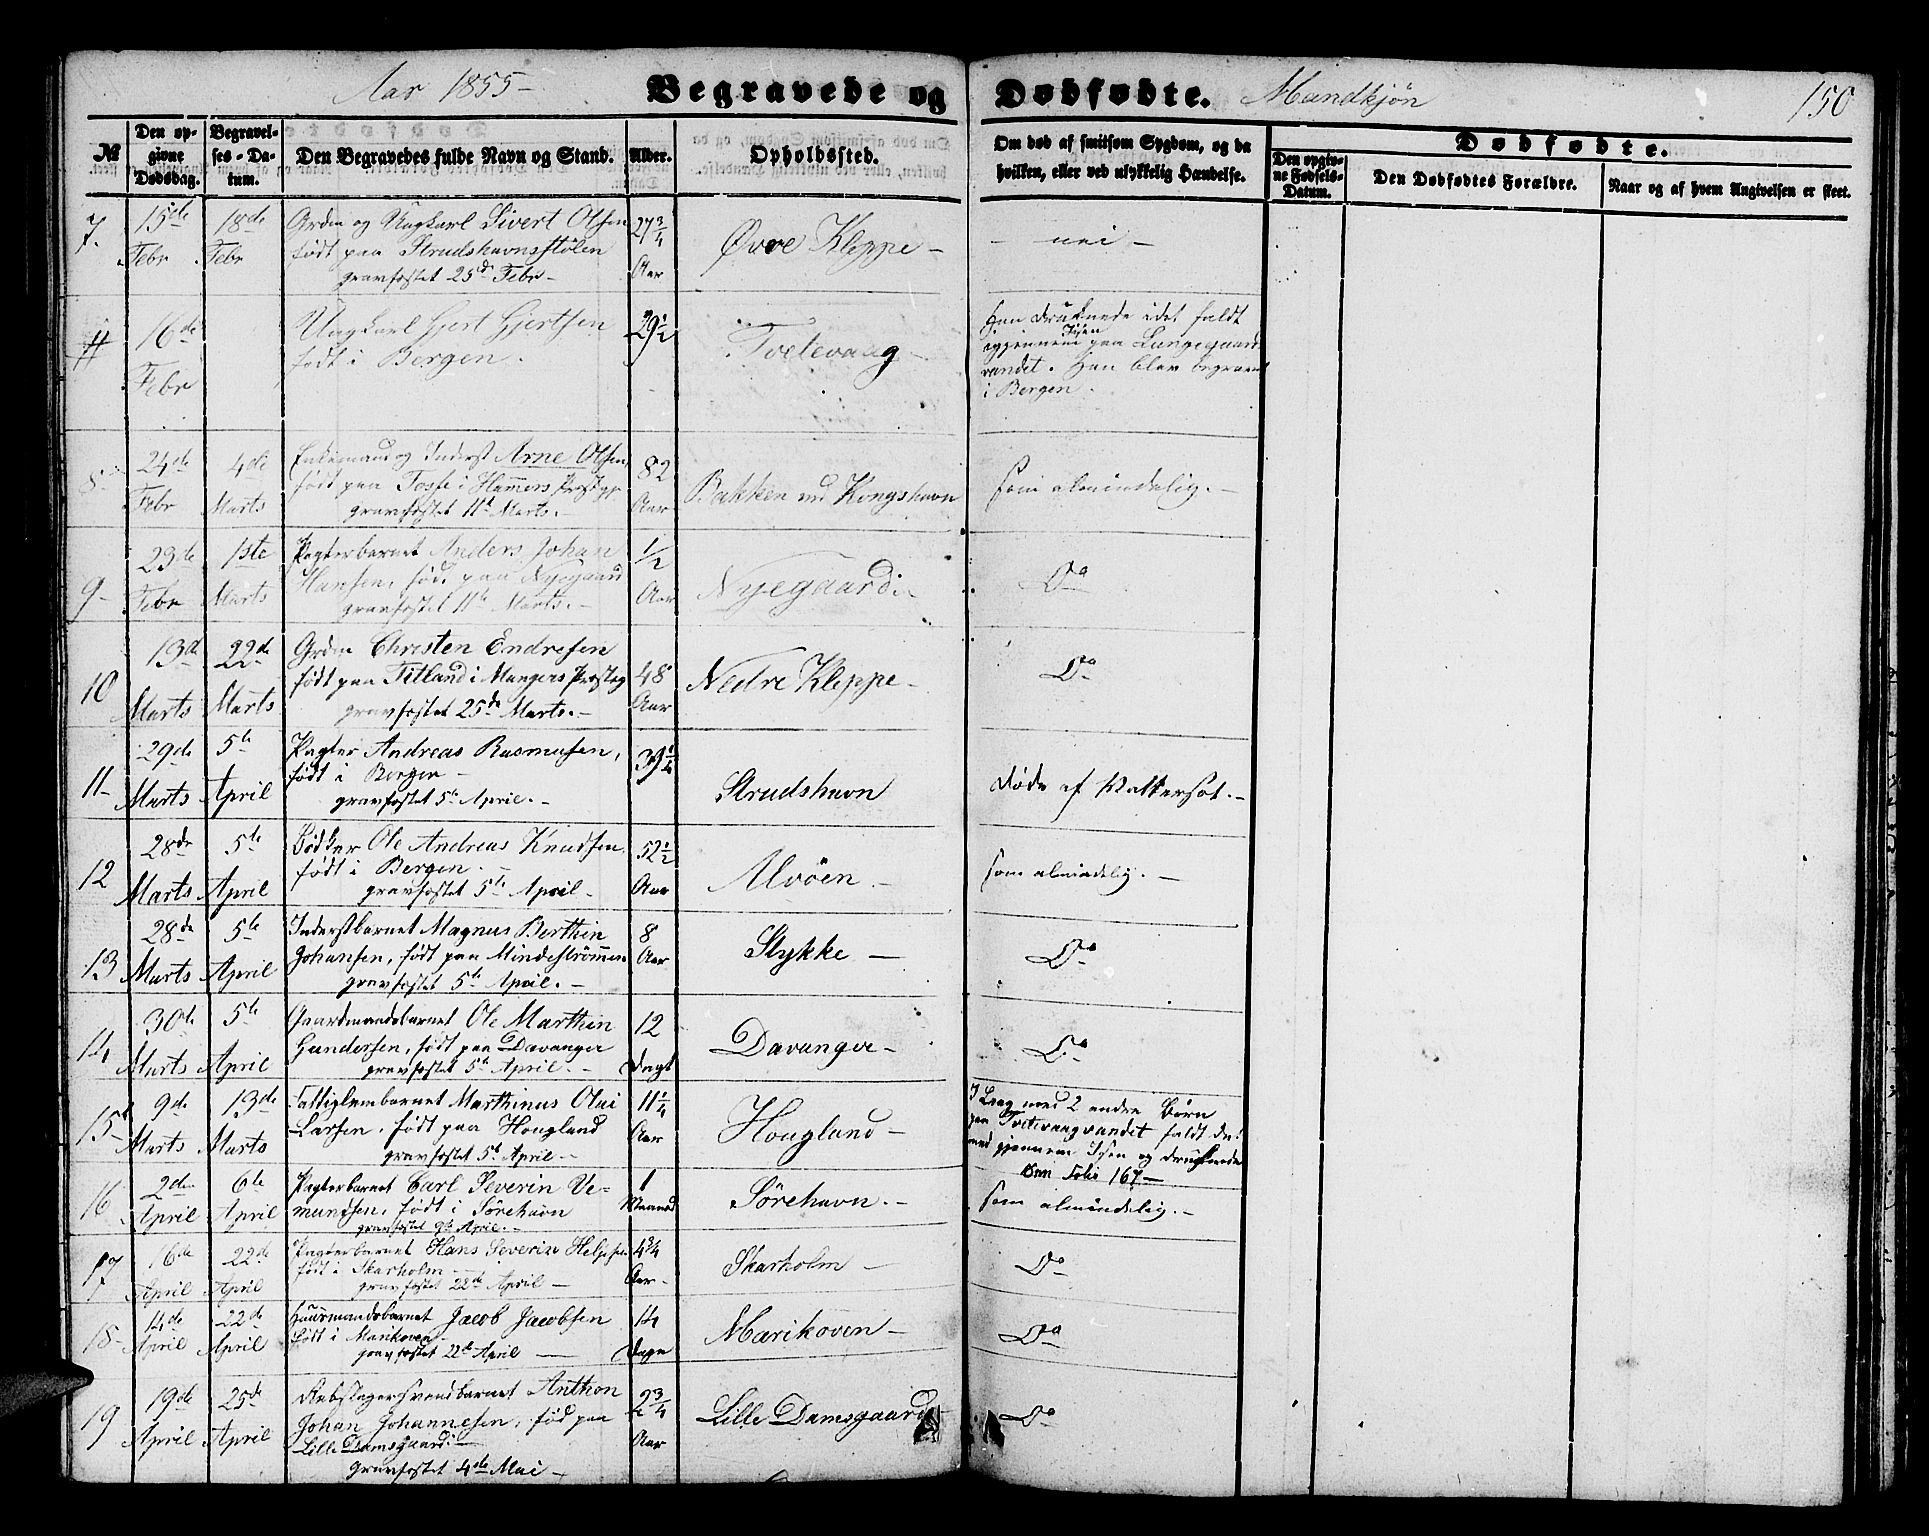 Aar 1855-
Begravede og Dødfødte.
Mandkjøn
150
№
Den opgivne Dødsdag.
Begravelses-Datum.
Den Begravedes fulde Navn og Stand.
Alder.
Opholdssted.
Om død af smitsom Sygdom, og da hvilken, eller ved ulykkelig Hændelse.
Dødfødte.
Den opgivne Fødsels-Datum.
Den Dødfødtes Forældre.
Naar og af hvem Angivelsen er skeet.
7.
15de Febr
18de Febr
og Ungkarl Sivert Olsen
født paa Strudshavnsstølen
gravfæstet 25d Febr-
27 3/4 Aar
Øvre Kleppe-
- nei -
#
16de Febr
Ungkarl Gjert Gjertsen
født i Bergen.
29 1/2
Tvetevaag-
Han druknede idet faldt
igjennem Isen paa Lungegaards
vandet. Han blev begravet
i Bergen.
8
24de Febr
4de Marts
Enkemand og Inderst Arne Olsen,
født paa Tosse i Hammers Præstegj
gravfæstet 11te Marts.-
82 Aar
Bakken ved Kongshavn
som almindelig.-
9-
23de Febr
1ste Marts
Pagterbarnet Anders Johan
Hansen, fød. paa Nyegaard
gravfæstet 11te Marts.-
1/2 Aar
Nyegaard:-
Do
10
13d Marts
22de Marts
Christen Endresen
født paa Titland i Mangers Præsteg
gravfæstet 25de Marts.-
48 Aar
Nedre Kleppe-
Do
11-
29de Marts
5te April
Pagter Andreas Rasmusen,
født i Bergen-
gravfæstet 5te April.-
39 1/4
Strudshavn
Døde af Vattersot.-
12
28de Marts
5te April
Bødker Ole Andreas Knudsen,
født i Bergen.-
gravfæstet 5te April-
52 1/2 Aar
Alvøen-
som almindelig.-
13
28de Marts
5te April
Inderstbarnet Magnus Berthin
Johansen, født paa Mindeströmmen
gravfæstet 5te April.-
8 Aar
Stykke -
Do
14
30te Marts
5te April
Gaardmandsbarnet Ole Marthin
Gundersen, født paa Davanger
gravfæstet 5te April.-
12 Dage
Davanger-
Do
15
9de Marts
13de Marts
Fattiglembarnet Marthinus Olai
Larsen, født paa Hougland
gravfæstet 5te April.-
11 1/4 Aar
Hougland-
I Laag med 2 andre Børn
paa Tvetevaagvandet faldt
ned gjennem Isen og druknede
Folio 167-
16
2den April
6te April
Pagterbarnet Carl Severin Ve=
mundsen, født i Sörehavn
gravfæstet 9de April.-
1 Maaned
Sörehavn.-
som almindelig.-
17
16de April
22de April
Pagterbarnet Hans Severin
født i Skarholm-
gravfæstet 22de April -
4 3/4 Aar-
Skarholm -
Do
18-
14de April
22de April
Huusmandsbarnet Jacob Jacobsen
født i Marikoven-
gravfæstet 22de April -
14 Dage
Marikoven-
Do
19
19de April
25de April
Rebslagersvendbarnet Anthon
Johan Johannesen, fød paa
Lille Damsgaard:-
gravfæstet 4de Mai-
2 3/4 Aar
Lille Damsgaard-
Do